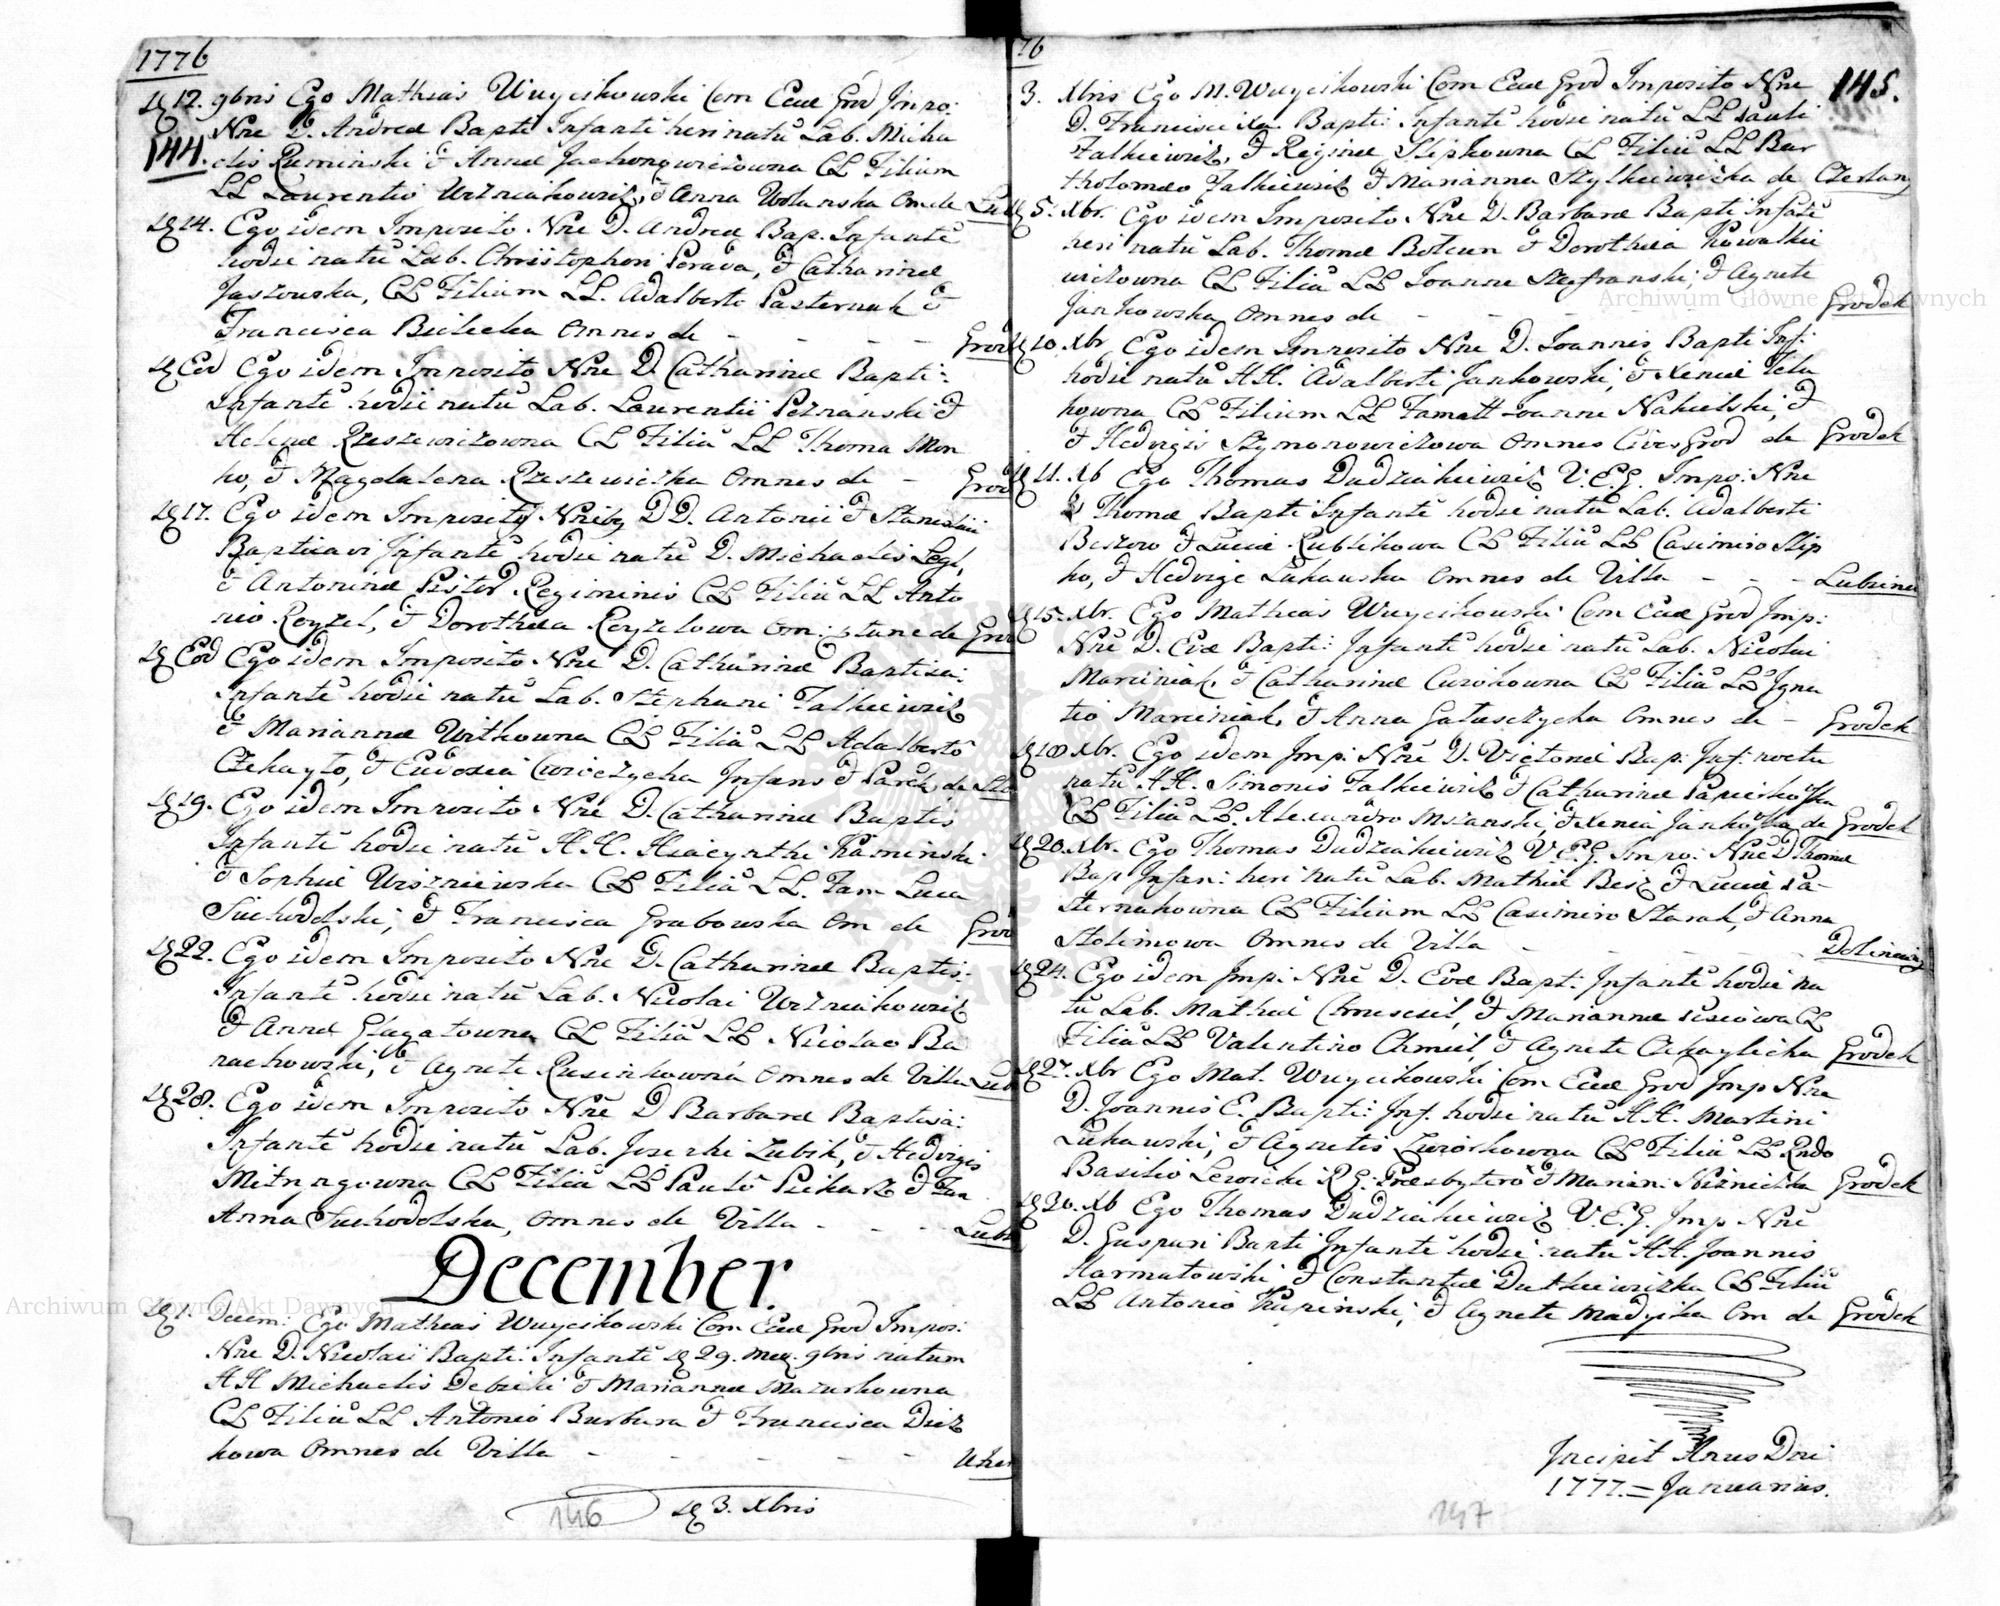 1776
D 12. 9bris Ego Mathias Wuycikowski Com Eccle Grod Impo:
Nne D. Andreæ Bapti Infantē heri natū Lab. Micha
144.
elis Ruminski & Annæ Jachonowiczowna CL Filium
LL Laurentio Wozniakowicz, & Anna Wolanska Om de
D 14. Ego idem Imposito Nne D. Andreæ Bap. Infantē
hodie natū Lab. Christophori Perada, & Catharinæ
Jaszowska, CL Filium LL. Adalberto Pasternak &
Francisca Bielecka Omnes de - - - -
D Eod Ego idem Imposito Nne D. Catharinæ Bapti:
Infantē hodie natū Lab. Laurentii Poznanski &
Helenæ Rzeszewiczowna CL Filiā LL Thoma Mon
ko, & Magdalena Rzeszewiczka Omnes de -
D 17. Ego idem Imposity Nnibq DD. Antonii & Stanislai
Baptizavi Infantē hodie natū D. Michaelis Legl,
& Antoninæ Pistor Regiminis CL Filiū LL Anto
nio Reyzel, & Dorothea Reyzelowa Om: stane de
D Eod Ego idem Imposito Nne D. Catharinæ Baptisa:
Infantē hodie natū Lab. Stephani Falkiewicz
& Mariannæ Witkowna CL Filiā LL Adalberto
Czekayto, & Eudoxia Cwiczycka Infans & Parēt, de
D 19. Ego idem Imposito Nne D. Catharinæ Baptis
Infantē hodie natū HH. Hiacynthi Kaminski
& Sophiæ Wiszniewska CL Filiā LL. Fam Luca
Suchodolski, & Francisca Grabowska Om de
D 22. Ego idem Imposito Nne D. Catharinæ Baptis:
Infantē hodie natū Lab. Nicolai Wozniakowicz
& Annæ Glagatowna CL Filiā LL Nicolao Ba
rachowski, & Agnete Rusinkowna Omnes de Villa
D 28. Ego idem Imposito Nne D Barbaræ Baptisa:
Infantē hodie natū Lab. Josephi Zubik, & Hedvigis
Mitryngowna CL Filiā LL Paulo Piekarz & Fam
Anna Suchodolska, Omnes de Villa - - -
December.
D 1. Decem: Ego Mathias Wuycikowski Com Eccle Grod Impos:
Nne D. Nicolai Bapti: Infantē D 29. mens. 9bris natum
HH Michaelis Debicki & Mariannæ Mazurkowna
CL Filiū LL Antonio Burbura & Francisca Dicz
kowa Omnes de Villa - - - - -
D 3. Xbris
146
76
145.
3. Xbris Ego M. Wuycikowski Com Eccle Grod Imposito Nne
D. Francisci Xa. Bapti: Infantē hodie natū LL Pauli
Falkiewicz, & Reginæ Slipkowna CL Filiū LL Bar
tholomeo Falkiewicz & Marianna Szylkiewiczka de Czerlany
D 5. Xbr. Ego idem Imposito Nne D. Barbaræ Bapti Infātē
heri natū Lab. Thomæ Bolcun & Dorothea Kowalkie
wiczowna CL Filiā LL Joanne Szafranski, & Agnete
Jankowska Omnes de - - - - Grodek
D 10. Xbr Ego idem Imposito Nne D. Joannis Bapti Inf:
hodie natū HH. Adalberti Jankowski, & Xeniæ Tela
kowna CL Filium LL Famatt Joanne Nakielski, &
& Hedvigis Szymonowiczowa Omnes Cives Grod de Grodek
D 11. Xb Ego Thomas Dudziakiewicz V.E.G. Impo: Nne
D Thomæ Bapti Infantē hodie natū Lab. Adalberti
Biszow & Luciæ Kublikowa CL Filiū LL Casimiro Slip
ko, & Hedvige Lukawska Omnes de Villa - - - Lubzina
D 15. Xbr. Ego Mathias Wuycikowski Com Eccle Grod Imp:
Nne D. Evæ Bapti: Infantē hodie natū Lab. Nicolai
Marciniak, & Catharinæ Curokowna CL Filiā LL Igna
tio Marciniak, & Anna Galusczycka Omnes de - Grodek
D 18 Xbr. Ego idem Imp: Nne D. Victoriæ Bap: Inf: noctu
natū HH. Simonis Falkiewicz & Catharinæ Papierkoska
CL Filiā LL. Alexandro Mszanski, & Xenia Jankoska de Grodek
D 20. Xbr. Ego Thomas Dudziakiewicz V.E.G. Impo: Nne D Thomæ
Bap Infan: heri natū Lab. Mathiæ Besz & Luciæ Pa-
sternakowna CL Filium LL Casimiro Starak, & Anna
Stolimowa Omnes de Villa - - - -
D 24. Ego idem Imp: Nne D. Evæ Bapt: Infantē hodie na
tū Lab. Mathiæ Chmiesil, & Mariannæ CL
Filiā LL Valentino Chmiel, & Agnete Czekaylicha Grodek
D 27. Xbr Ego Mat. Wuycikowski Com Eccle Grod Imp Nne
D. Joannis E. Bapti: Inf. hodie natū HH. Martini
Lukawski, & Agnetis Zworkowna CL Filiū LL Rndo
Basilio Lewicki R.G. Præsbytero & Marian: Nizniczka Grodek
D 30. Xb Ego Thomas Dudziakiewicz V.E.G. Imp Nne
D. Gaspari Bapti Infantē hodie natū HH. Joannis
Harmatowski & Constantiæ Dutkiewiczka CL Filiū
LL Antonio Krupinski, & Agnete Madycka Om de Grodek
Incipit Anus Dni
1777. = Januarius.
147
Archiwum Główne Akt Dawnych
Archiwum Główne Akt Dawnych